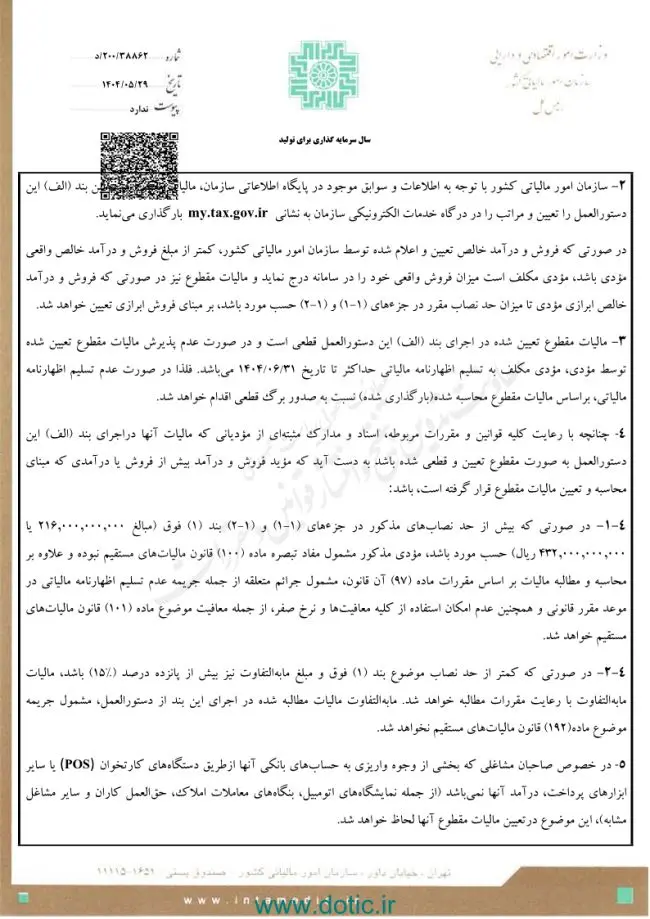 وزارت امور اقتصادی و دارایی
سازمان امور مالیاتی کشور
رئیس کل
شماره ۲۰۰/۳۸۸۶۲/د
تاریخ ۱۴۰۴/۰۵/۲۹
پیوست ندارد
سال سرمایه گذاری برای تولید
۲- سازمان امور مالیاتی کشور با توجه به اطلاعات و سوابق موجود در پایگاه اطلاعاتی سازمان، مالیات بند (الف) این
دستورالعمل را تعیین و مراتب را در درگاه خدمات الکترونیکی سازمان به نشانی my.tax.gov.ir بارگذاری می‌نماید.
در صورتی که فروش و درآمد خالص تعیین و اعلام شده توسط سازمان امور مالیاتی کشور، کمتر از مبلغ فروش و درآمد خالص واقعی
مؤدی باشد، مؤدی مکلف است میزان فروش واقعی خود را در سامانه درج نماید و مالیات مقطوع نیز در صورتی که فروش و درآمد
خالص ابرازی مؤدی تا میزان حد نصاب مقرر در جزءهای (۱-۱) و (۲-۱) حسب مورد باشد، بر مبنای فروش ابرازی تعیین خواهد شد.
۳- مالیات مقطوع تعیین شده در اجرای بند (الف) این دستورالعمل قطعی است و در صورت عدم پذیرش مالیات مقطوع تعیین شده
توسط مؤدی، مؤدی مکلف به تسلیم اظهارنامه مالیاتی حداکثر تا تاریخ ۱۴۰۴/۰۶/۳۱ می‌باشد. فلذا در صورت عدم تسلیم اظهارنامه
مالیاتی، براساس مالیات مقطوع محاسبه شده(بارگذاری شده) نسبت به صدور برگ قطعی اقدام خواهد شد.
۴- چنانچه با رعایت کلیه قوانین و مقررات مربوطه، اسناد و مدارک مثبته‌ای از مؤدیانی که مالیات آنها دراجرای بند (الف) این
دستورالعمل به صورت مقطوع تعیین و قطعی شده باشد به دست آید که مؤید فروش و درآمد بیش از فروش یا درآمدی که مبنای
محاسبه و تعیین مالیات مقطوع قرار گرفته است، باشد:
۴-۱- در صورتی که بیش از حد نصاب‌های مذکور در جزءهای (۱-۱) و (۲-۱) بند (۱) فوق (مبالغ ۲۱۶,۰۰۰,۰۰۰,۰۰۰ یا
۴۳۲,۰۰۰,۰۰۰,۰۰۰ ریال) حسب مورد باشد، مؤدی مذکور مشمول مفاد تبصره ماده (۱۰۰) قانون مالیات‌های مستقیم نبوده و علاوه بر
محاسبه و مطالبه مالیات بر اساس مقررات ماده (۹۷) آن قانون، مشمول جرائم متعلقه از جمله جریمه عدم تسلیم اظهارنامه مالیاتی در
موعد مقرر قانونی و همچنین عدم امکان استفاده از کلیه معافیت‌ها و نرخ صفر، از جمله معافیت موضوع ماده (۱۰۱) قانون مالیات‌های
مستقیم خواهد شد.
۴-۲- در صورتی که کمتر از حد نصاب موضوع بند (۱) فوق و مبلغ مابه‌التفاوت نیز بیش از پانزده درصد (۱۵٪) باشد، مالیات
مابه‌التفاوت با رعایت مقررات مطالبه خواهد شد. مابه‌التفاوت مالیات مطالبه شده در اجرای این بند از دستورالعمل، مشمول جریمه
موضوع ماده(۱۹۲) قانون مالیات‌های مستقیم نخواهد شد.
۵- در خصوص صاحبان مشاغلی که بخشی از وجوه واریزی به حساب‌های بانکی آنها ازطریق دستگاه‌های کارتخوان (POS) یا سایر
ابزارهای پرداخت، درآمد آنها نمی‌باشد (از جمله نمایشگاه‌های اتومبیل، بنگاه‌های معاملات املاک، حق‌العمل کاران و سایر مشاغل
مشابه)، این موضوع درتعیین مالیات مقطوع آنها لحاظ خواهد شد.
تهران - خیابان داور - سازمان امور مالیاتی کشور - صندوق پستی ۱۶۵۱-۱۱۱۱۵
www.intamedia.ir
www.dotic.ir